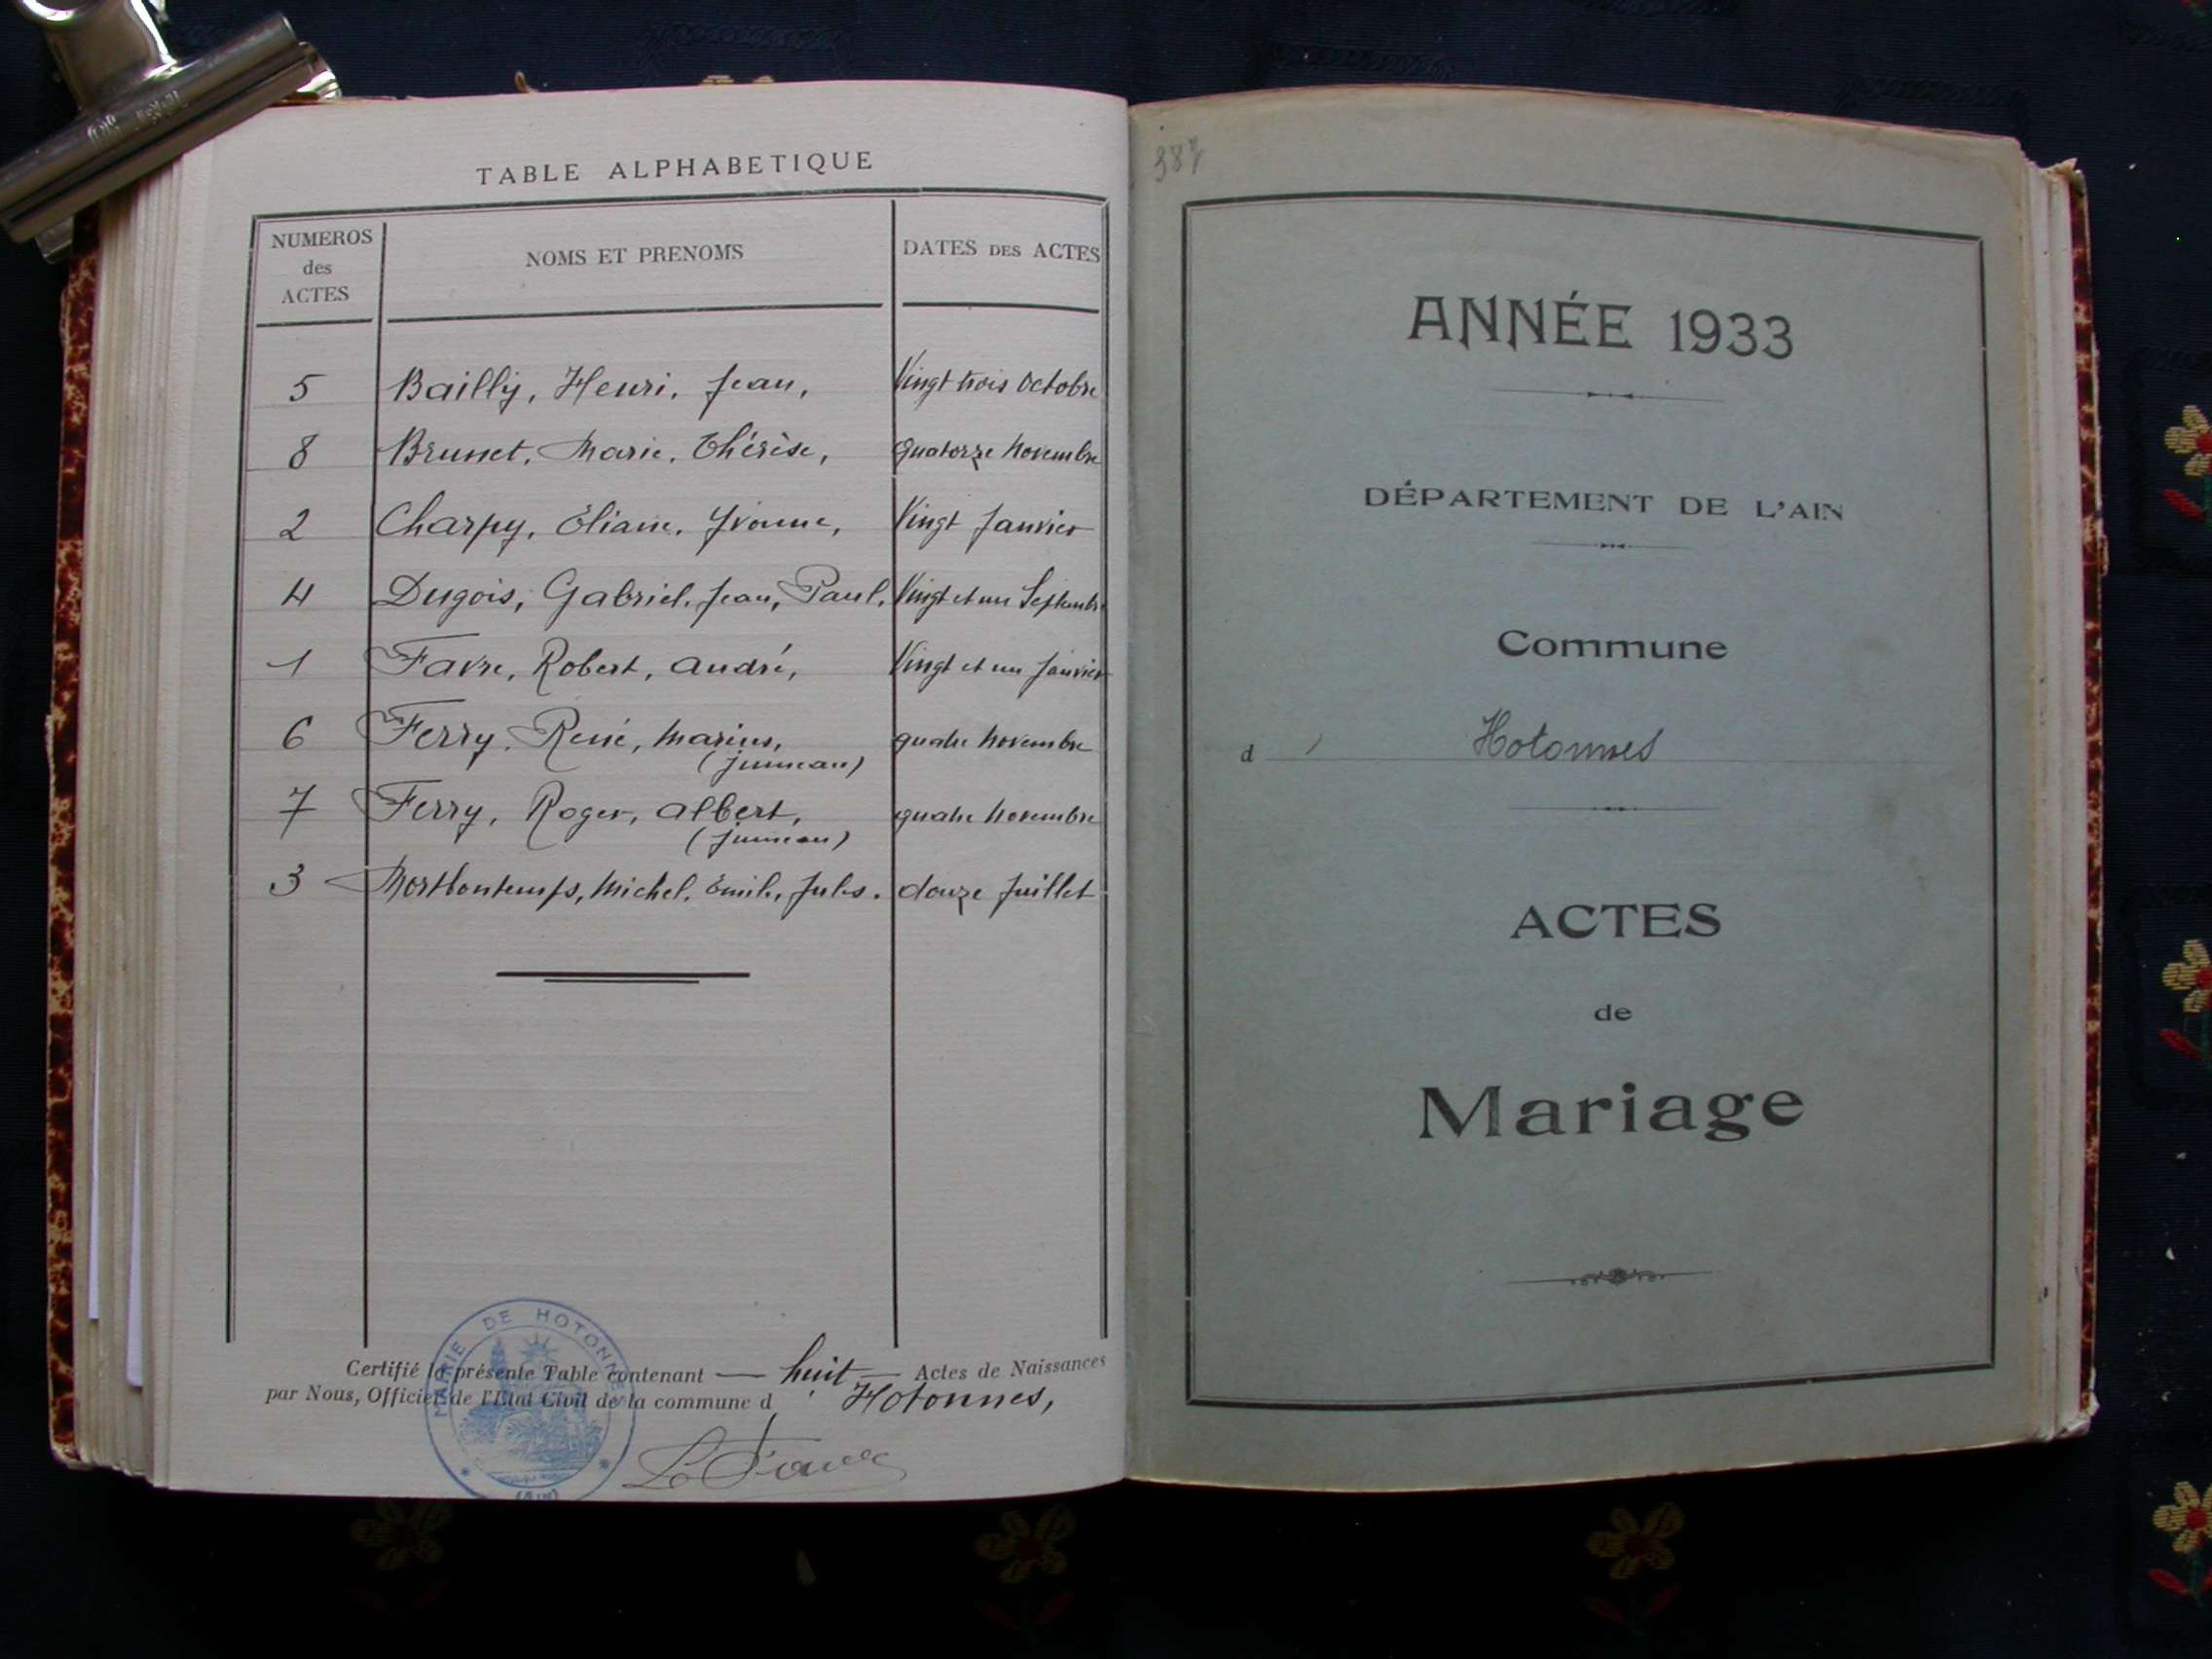 TABLE ALPHABETIQUE
NUMEROS des ACTES
NOMS ET PRENOMS
DATES DES ACTES
5 Bailly, Henri, Jean, Vingt trois Octobre
8 Brunet, Marie, Thérèse, quatorze Novembre
2 Charpy, Éliane, Yvonne, Vingt Janvier
4 Dugois, Gabriel, Jean, Paul, Vingt et un Septembre
1 Favre, Robert, André, Vingt et un Janvier
6 Ferry, René, Marius, quatre Novembre
(jumeau)
7 Ferry, Roger, Albert, quatre Novembre
(jumeau)
3 Michel, Émile, Jules. douze Juillet
Certifié la présente Table contenant — huit — Actes de Naissances
par Nous, Officier de l'Etat Civil de la commune d Hotonnes,
MAIRIE DE HOTONNES
(Ain)
387
ANNÉE 1933
DÉPARTEMENT DE L'AIN
Commune
d' Hotonnes
ACTES
de
Mariage